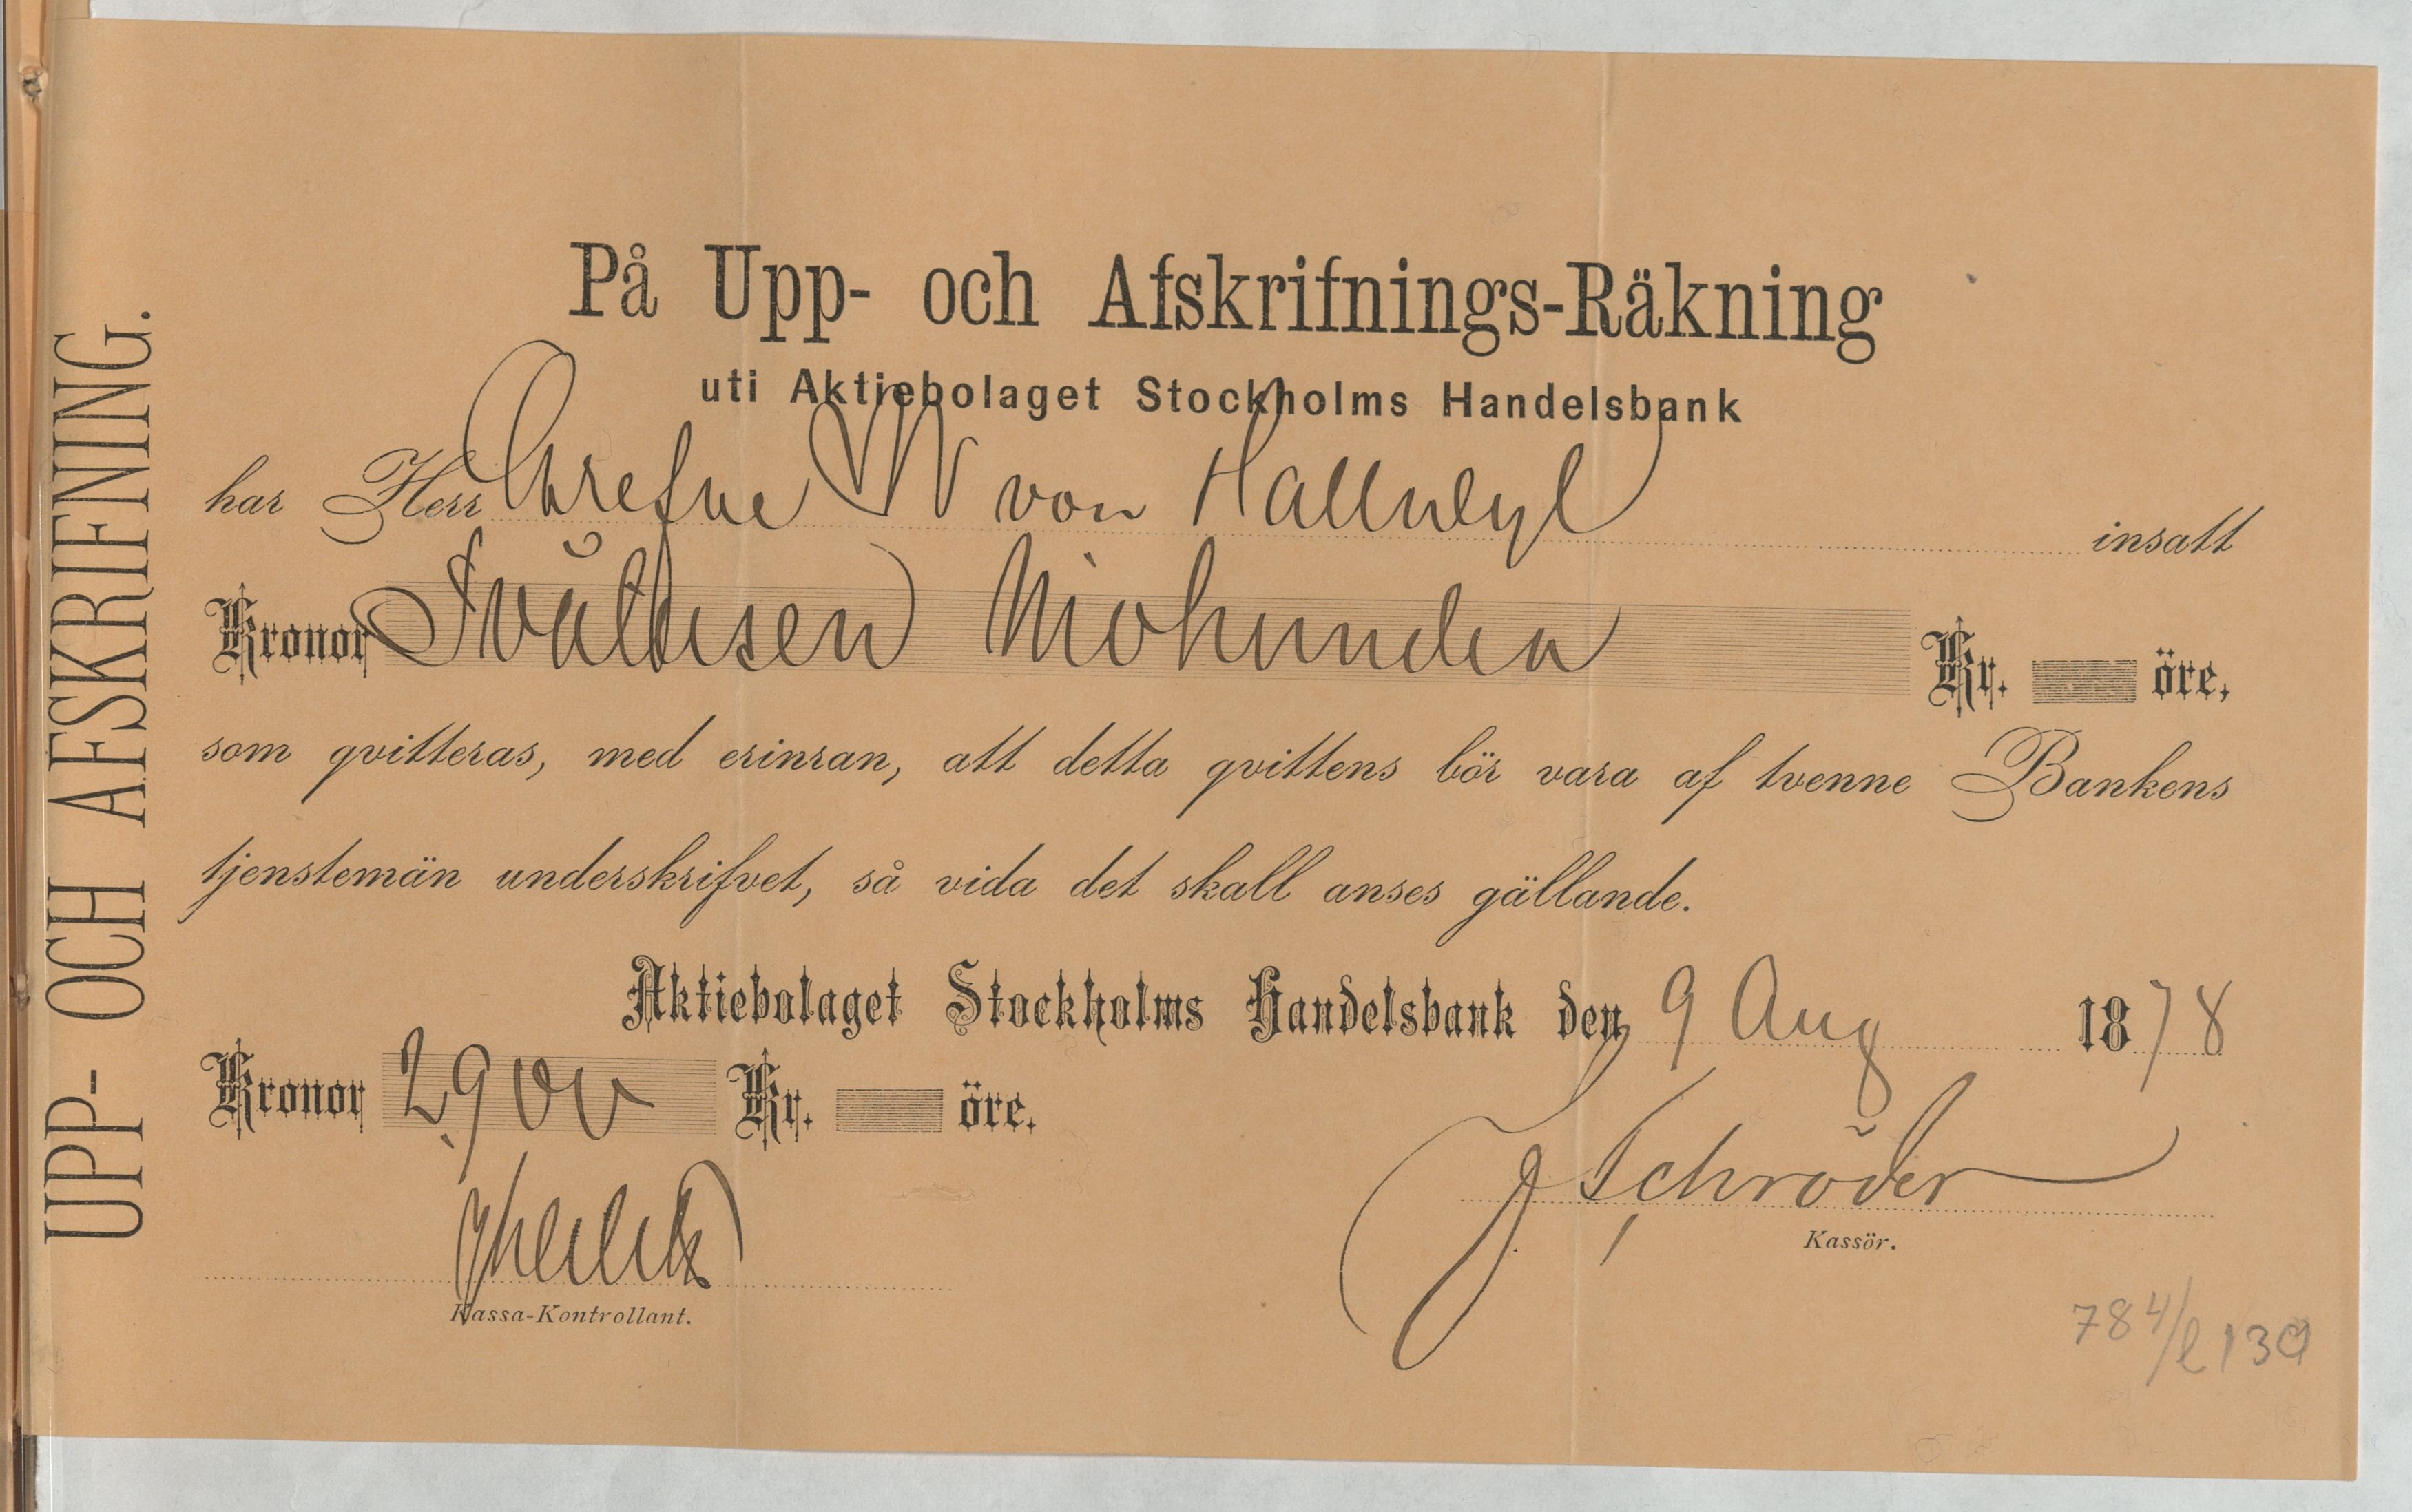 UPP- OCH AFSKRIFNING.
På Upp- och Afskrifnings-Räkning
uti Aktiebolaget Stockholms Handelsbank
har Herr Grefve W von Hallwyl insatt
Kronor Tvåtusen Niohundra Kr. öre,
som qvitteras, med erinran, att detta qvittens bör vara af tvenne Bankens
tjenstemän underskrifvet, så vida det skall anses gällande.
Aktiebolaget Stockholms Handelsbank den 9 Aug 1878
Kronor 2,900 Kr. öre.
J Schröder
Kassör.
Kassa-Kontrollant.
784/ 139